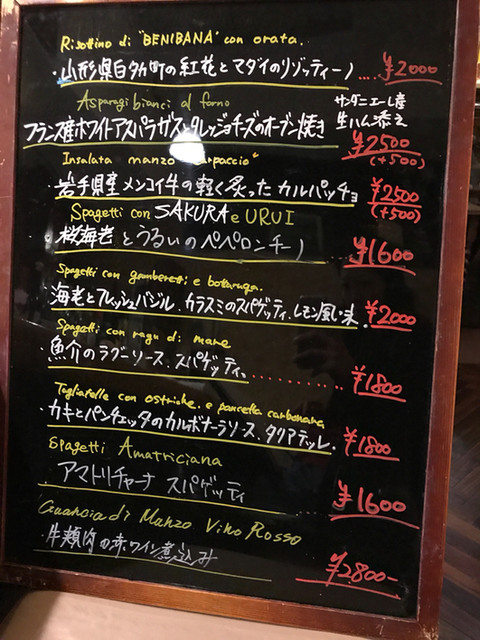 Risottino di "BENIBANA" con orata.
・山形県白タカ町の紅花とマダイのリゾッティーノ.... ¥2000
Asparagi bianci al forno
サンダニエーレ産
フランス産ホワイトアスパラガスとタレッジョチーズのオーブン焼き 生ハム添え
¥2500
(+500)
Insalata manzo "carpaccio"
・岩手県産メンコイ牛の軽く炙ったカルパッチョ ¥2500
(+500)
Spagetti con SAKURA e URUI
・桜海老とうるいのペペロンチーノ ¥1600
Spagetti con gamberetti e bottarga.
・海老とフレッシュバジル、カラスミのスパゲッティ、レモン風味. ¥2000
Spagetti con ragu di mare
・魚介のラグーソース、スパゲッティ。.......... ¥1800
Togliatelle con ostriche e pancetta carbonara
・カキとパンチェッタのカルボナーラソース、タリアテッレ. ¥1800
Spagetti Amatriciana
アマトリチャーナ スパゲッティ ¥1600
Guancia di Manzo Vino Rosso
・牛頬肉の赤ワイン煮込み ¥2800-